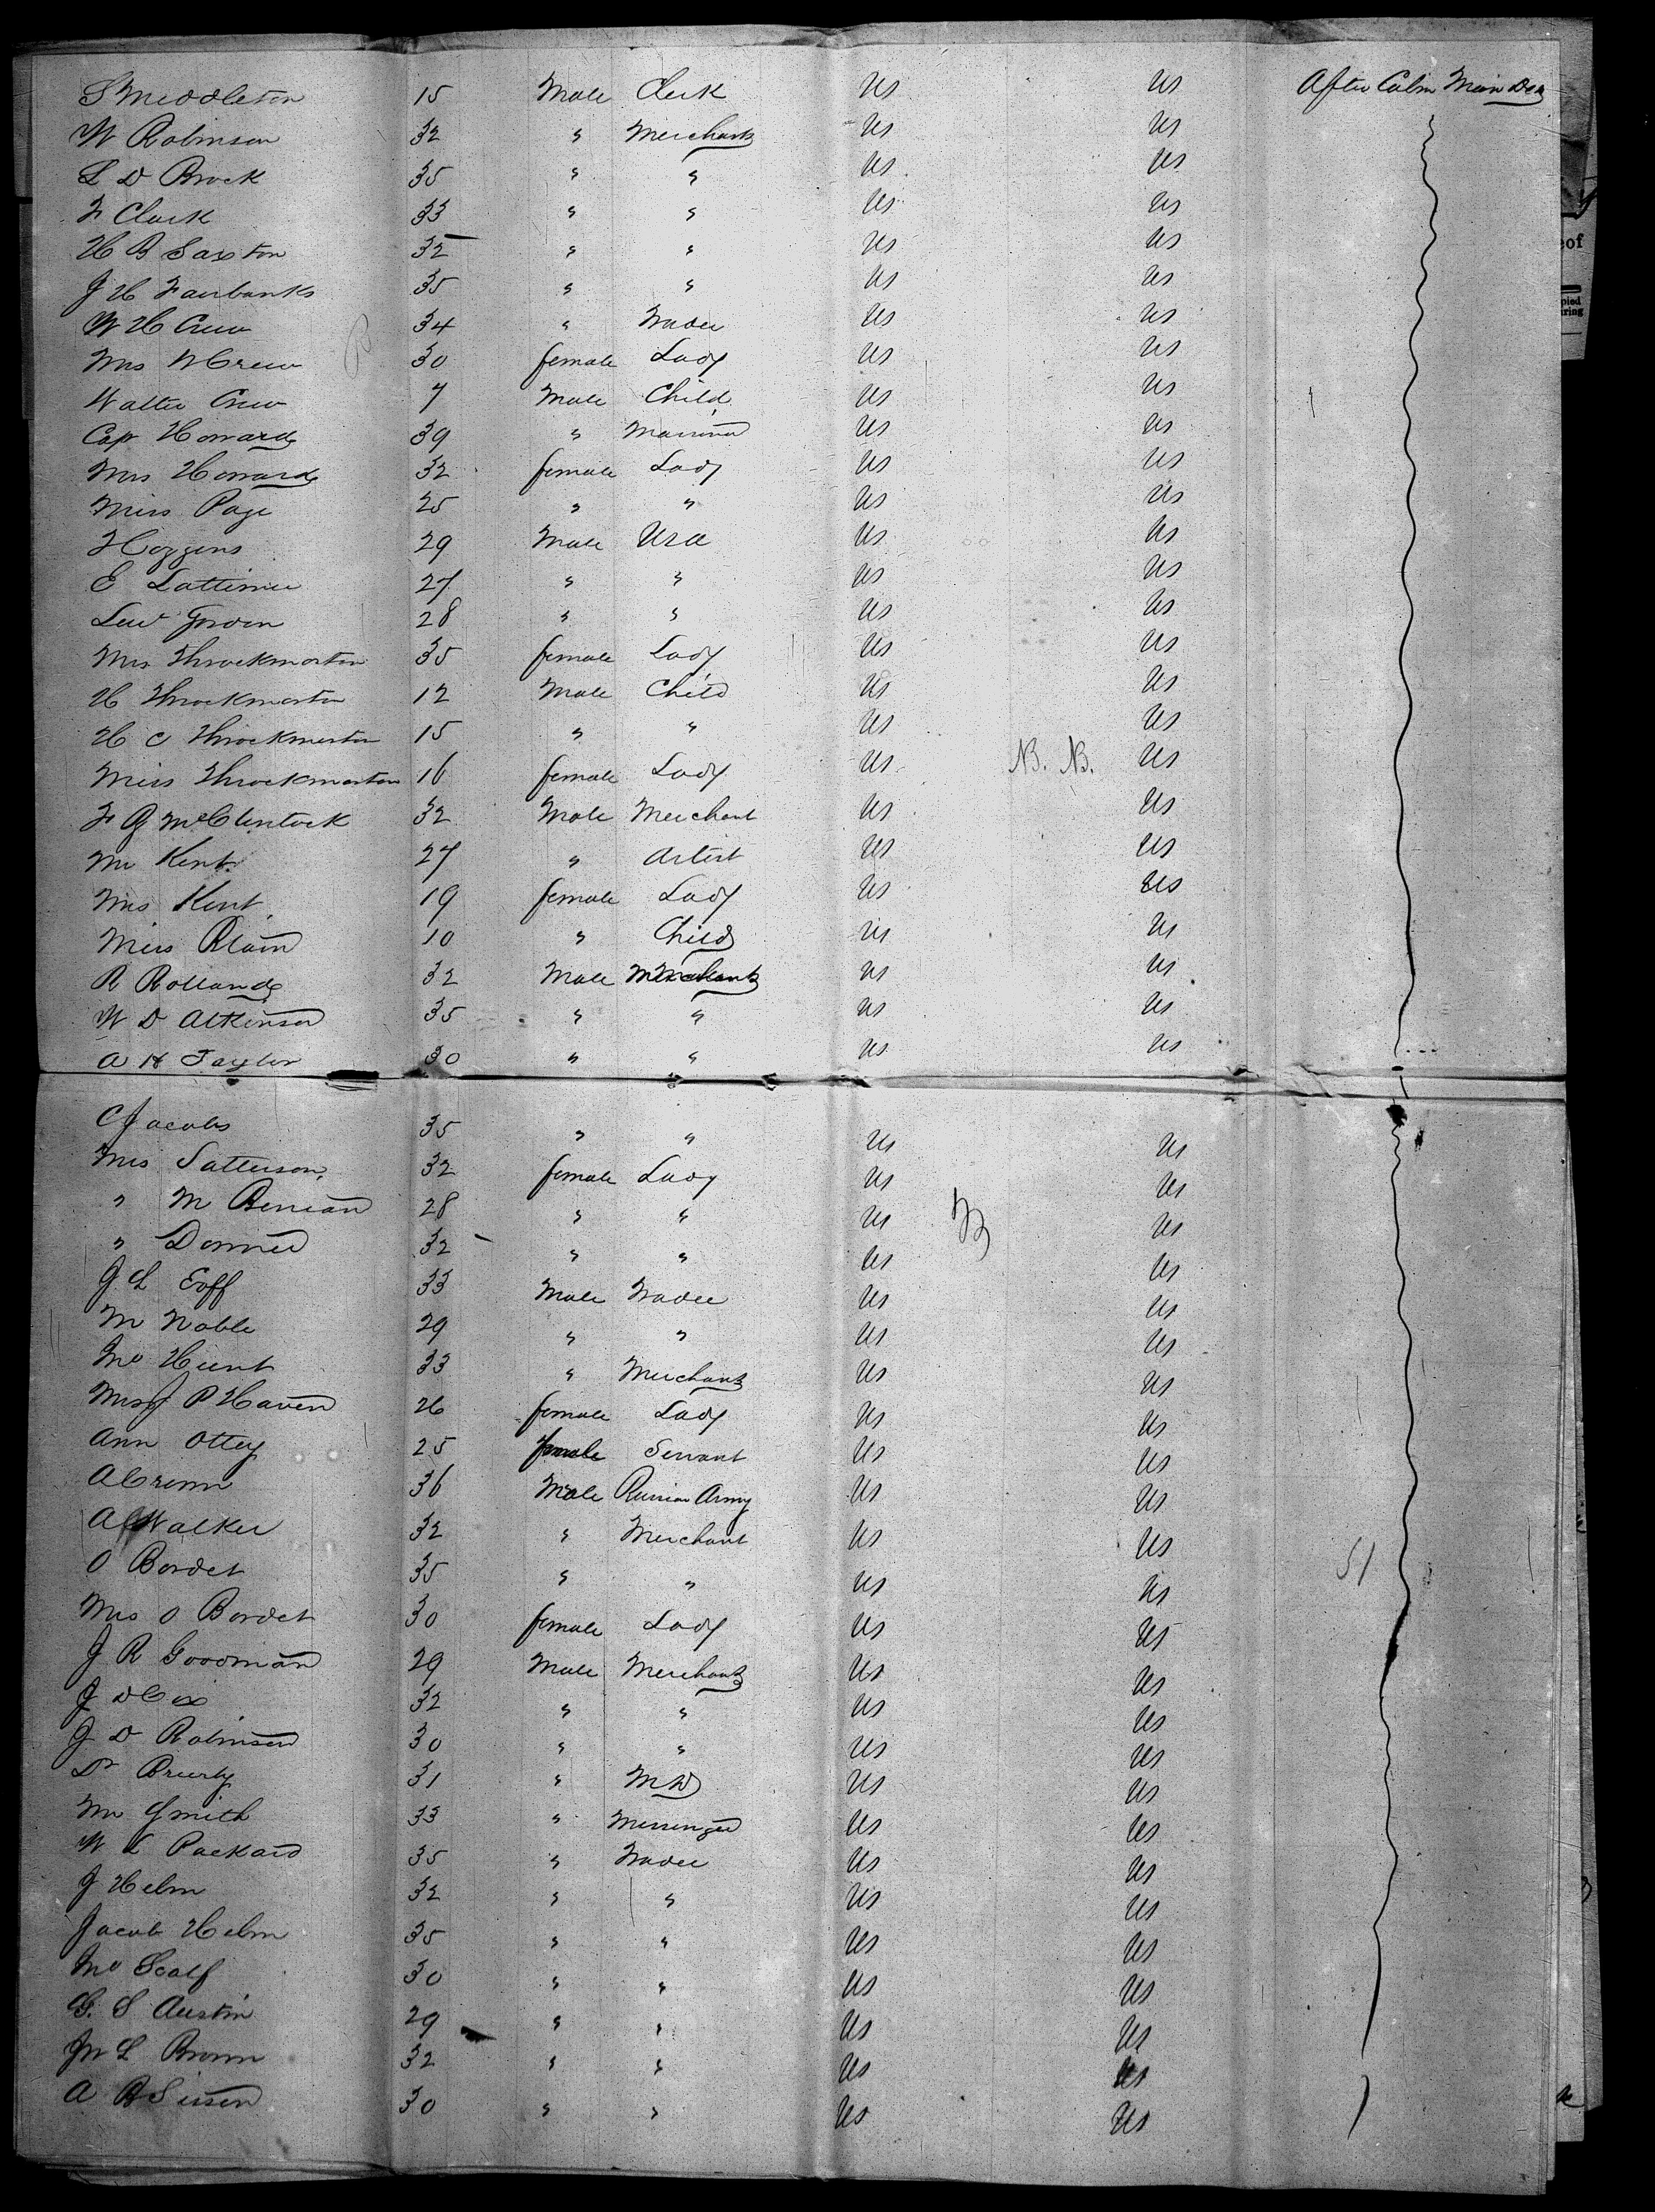 S Middleton 15 Male Clerk US US After Cabin Main Deck
W Robinson 32 " Merchant US US
L D Brock 35 " " US US
F Clark 33 " " US US
H B Saxton 32 " " US US
J H Fairbanks 35 " " US US
W H Crew 34 " Trader US US
Mrs W Crew 30 female Lady US US
Walter Crew 7 Male Child US US
Cap Howard 39 " Mariner US US
Mrs Howard 32 female Lady US US
Miss Page 25 " " US US
Hoggins 29 Male USA US US
E Lattimer 27 " " US US
28 " " US US
Mrs Throckmorton 35 female Lady US US
H Throckmorton 12 Male Child US US
H C Throckmorton 15 " " US US
Miss Throckmorton 16 female Lady US N.B. N.B. US
F G McClintock 32 Male Merchant US US
Mr Kent 27 " Artist US US
Mrs Kent 19 female Lady US US
Miss Blain 10 " Child US US
R Rolland 32 Male Merchant US US
W D Atkinson 35 " " US US
A H Taylor 30 " " US US
C Jacobs 35 " " US US
Mrs Satterson 32 female Lady US US
" M 28 " " US US
" 32 " " US US
J L Eoff 33 Male Trader US US
M Noble 29 " " US US
Mr Hunt 33 " Merchant US US
Mrs J P Haven 26 female Lady US US
Ann Ottey 25 female Servant US US
A 36 Male Russian Army US US
A Walker 32 " Merchant US US
O Bordet 35 " " US US 51
Mrs O Bordet 30 female Lady US US
J R Goodman 29 Male Merchant US US
J D Cox 32 " " US US
J D Robinson 30 " " US US
Dr Brierly 31 " MD US US
Mr Smith 33 " Messenger US US
W L Packard 35 " Trader US US
J Helm 32 " " US US
Jacob Helm 35 " " US US
Mr Scalf 30 " " US US
G. S Austin 29 " " US US
Jn L Brown 32 " " US US
A B Sisson 30 " " US US